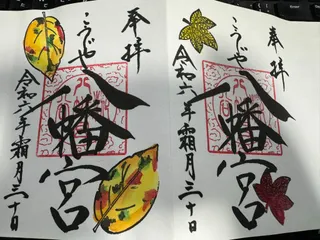 奉拝
こうや
八幡宮
令和六年霜月三十日
奉拝
こうや
八幡宮
令和六年霜月三十日